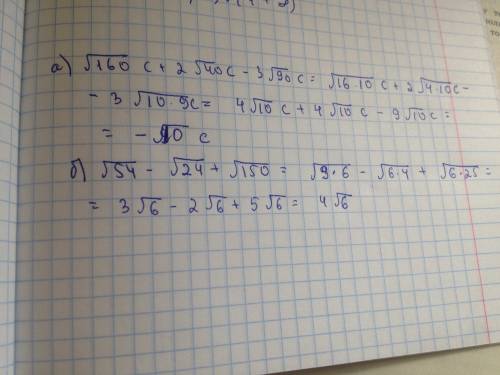 а) √160 c + 2√40c - 3√90c = √16·10 c + 2√4·10c -
- 3√10·9c = 4√10c + 4√10c - 9√10c =
= - √10 c
б) √54 - √24 + √150 = √9·6 - √6·4 + √6·25 =
= 3√6 - 2√6 + 5√6 = 4√6